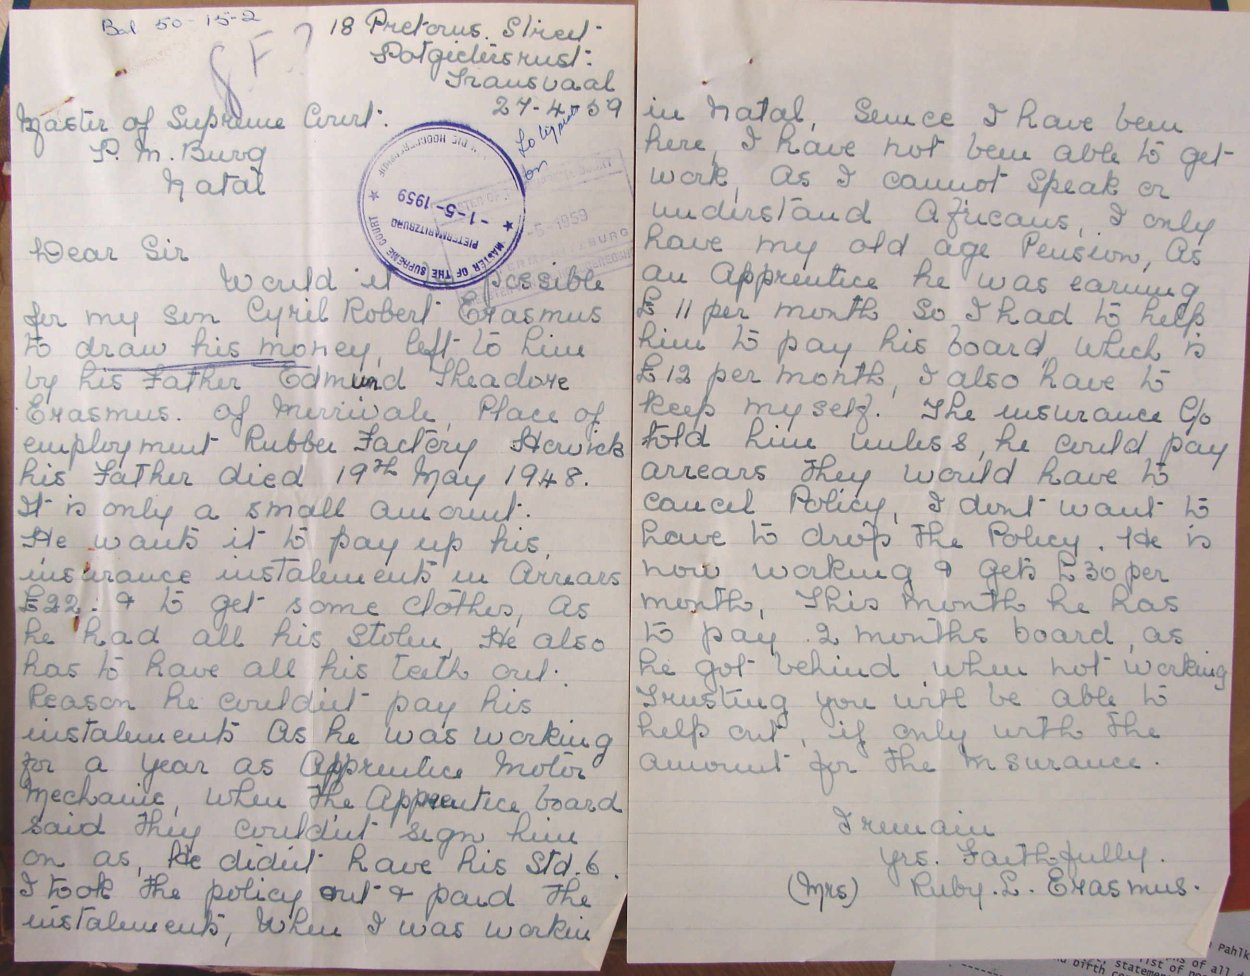 Bal 50-15-2
18 Pretorius Street
Potgietersrust
Transvaal
27-4-59
Master of Supreme Court.
P. M. Burg
Natal
MASTER OF THE SUPREME COURT
PIETERMARITZBURG
-1-5-1959
Dear Sir
Would it be possible
for my son Cyril Robert Erasmus
to draw his money, left to him
by his Father Edmund Theadore
Erasmus. of Merrivale, Place of
employment Rubber Factory Howick
his Father died 19th May 1948.
It is only a small amount.
He wants it to pay up his,
insurance instalments in Arrears
£22. & to get some clothes, as
he had all his stolen, He also
has to have all his teeth out.
Reason he couldn't pay his
instalments As he was working
for a year as Apprentice Motor
Mechanic, when the Apprentice board
said they couldn't sign him
on as, He didn't have his Std. 6.
I took the policy out & paid the
instalments, When I was workin
in Natal, Sence I have been
here, I have not been able to get
work, As I cannot Speak or
understand Africans, I only
have my old age Pension, As
an Apprentice he was earning
£11 per month So I had to help
him to pay his board, which is
£12 per month, I also have to
keep myself. The insurance C/o
told him unless, he could pay
arrears They would have to
cancel Policy, I dont want to
have to drop the Policy. He is
now working & gets £30 per
month, This month he has
to pay 2 months board, as
he got behind when not working
Trusting you will be able to
help out, if only with the
amount for the insurance.
I remain
Yrs. Faithfully.
(Mrs) Ruby. L. Erasmus.